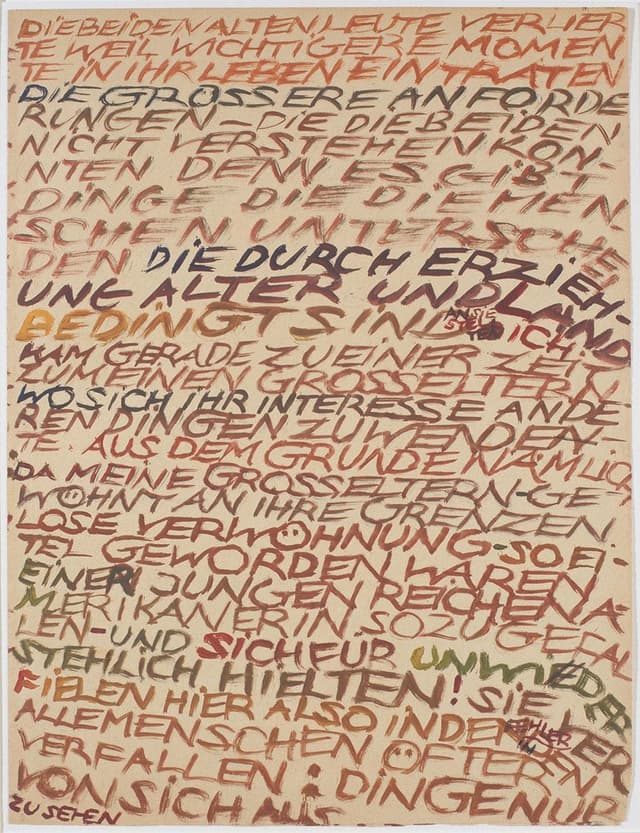 DIE BEIDEN ALTEN LEUTE VERLIER
TE WEIL WICHTIGERE MOMEN
TE IN IHR LEBEN EINTRATEN
DIE GRÖSSERE ANFORDE
RUNGEN – DIE DIE BEIDEN
NICHT VERSTEHEN KON-
NTEN DENN ES GIBT
DINGE DIE DIE MEN
SCHEN UNTERSCHEI
DEN DIE DURCH ERZIEH-
UNG ALTER UND LAND
BEDINGT SIND ICH
KAM GERADE ZU EINER ZEIT
ZU MEINEN GROSSELTERN
WO SICH IHR INTERESSE ANDE-
REN DINGEN ZUWENDEN-
TE AUS DEM GRUNDE NÄMLICH
DA MEINE GROSSELTERN-GE
WÖHNT AN IHRE GRENZEN
LOSE VERWÖHNUNG-SO EI-
TEL GEWORDEN WAREN
EINER JUNGEN REICHEN A
MERIKANERIN SO ZU GEFAL
LEN-UND SICH FÜR UNWIEDER
STEHLICH HIELTEN! SIE
FIELEN HIER ALSO IN DEN FEHLER DER
ALLE MENSCHEN ÖFTER
VERFALLEN: DINGE NUR
VON SICH AUS
ZU SEHEN